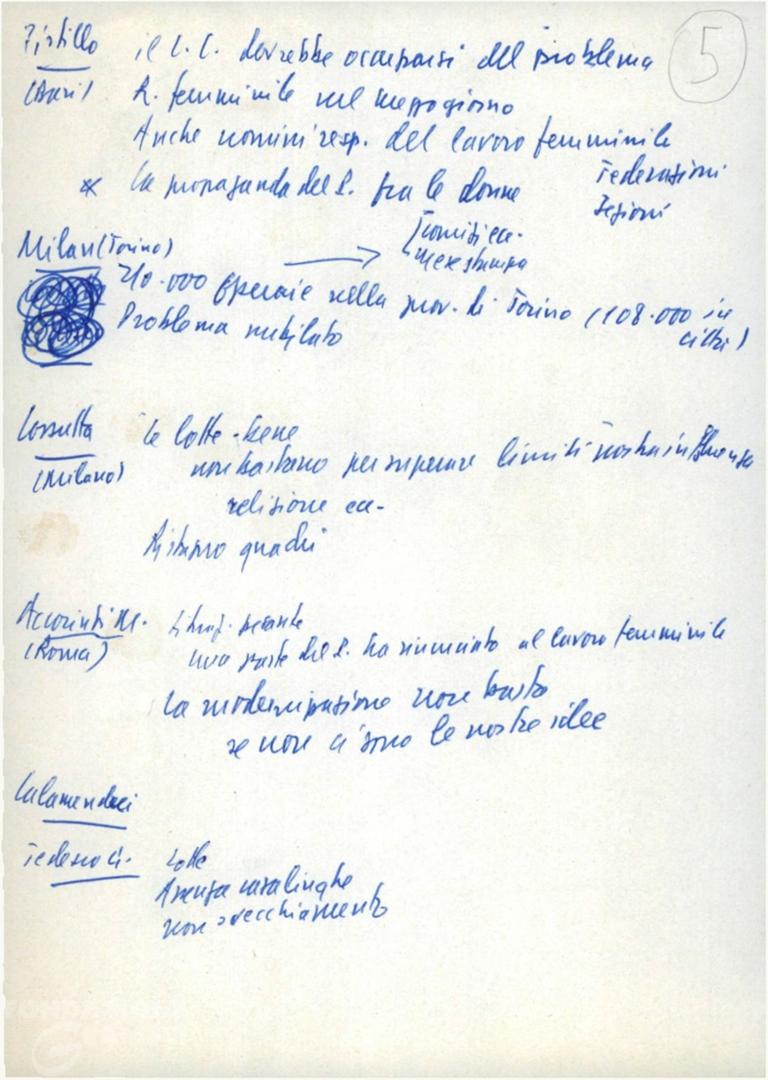 5
Pistillo il C.C. dovrebbe occuparsi del problema
(Bari) R. femminile nel mezzogiorno
Anche uomini resp. del lavoro femminile
* la propaganda del P. fra le donne Federazioni
Sezioni
Milani (Torino) →
210.000 operaie nella prov. di Torino (108.000 in
città)
Problema nubilato
Cossutta le lotte - bene
(Milano) non bastano per superare limiti nostra influenza
religione ecc.
quadri
Accorinti M.
(Roma) una parte del P. ha rinunciato al lavoro femminile
la modernizzazione non basta
se non ci sono le nostre idee
Calamandrei
Tedesco G. Lotte
Assenza casalinghe
non